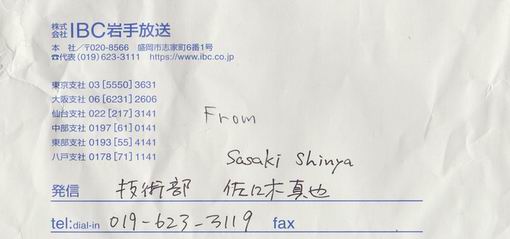 株式会社 IBC岩手放送
本　社／〒020-8566　盛岡市志家町6番1号
☎代表 (019) 623-3111　https://www.ibc.co.jp
東京支社 03 [5550] 3631
大阪支社 06 [6231] 2606
仙台支社 022 [217] 3141
中部支社 0197 [61] 0141
東部支社 0193 [55] 4141
八戸支社 0178 [71] 1141
From
Sasaki Shinya
発信 技術部 佐々木真也
tel:dial-in 019-623-3119 fax